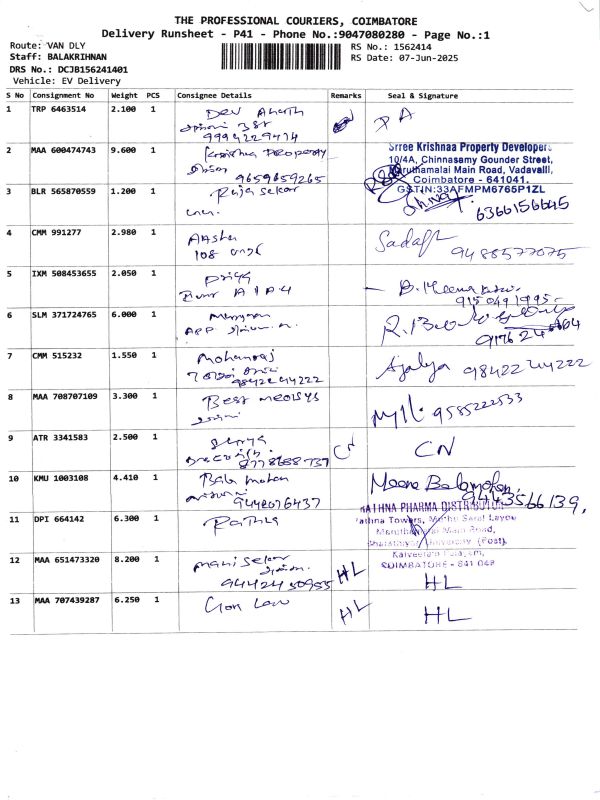 THE PROFESSIONAL COURIERS, COIMBATORE
Delivery Runsheet - P41 - Phone No.:9047080280 - Page No.:1
Route: VAN DLY
Staff: BALAKRIHNAN
DRS No.: DCJB156241401
Vehicle: EV Delivery
RS No.: 1562414
RS Date: 07-Jun-2025
S No Consignment No Weight PCS Consignee Details Remarks Seal & Signature
1 TRP 6463514 2.100 1 Dev
9994229474
2 MAA 600474743 9.600 1 Krishna Property
9659659265
Srree Krishnaa Property Developers
10/4A, Chinnasamy Gounder Street,
Maruthamalai Main Road, Vadavalli,
Coimbatore - 641041.
GSTIN:33AFMPM6765P1ZL
3 BLR 565870559 1.200 1 Raja Sekar
6366156645
4 CMM 991277 2.980 1
108
9488577075
5 IXM 508453655 2.050 1 Priya
9150491995
6 SLM 371724765 6.000 1 Murugan
7 CMM 515232 1.550 1 Mohanraj
9842244222 9842244222
8 MAA 708707109 3.300 1 Best
9585222533
9 ATR 3341583 2.500 1 CN CN
8778688737
10 KMU 1003108 4.410 1 Bala Mohan Meena Balamohan
9442076437 9443566139,
11 DPI 664142 6.300 1 Rathna
RATHNA PHARMA DISTRIBUTOR
Rathna Towers,
Main Road,
Bharathiyar University (Post),
Kalveeram Palayam,
COIMBATORE - 641 046
12 MAA 651473320 8.200 1 Mani Sekar HL HL
9442450955
13 MAA 707439287 6.250 1 Law HL HL